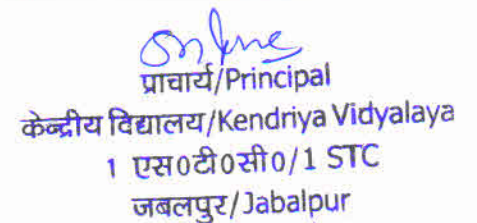 प्राचार्य/Principal
केन्द्रीय विद्यालय/Kendriya Vidyalaya
1 एस०टी०सी०/1 STC
जबलपुर/Jabalpur